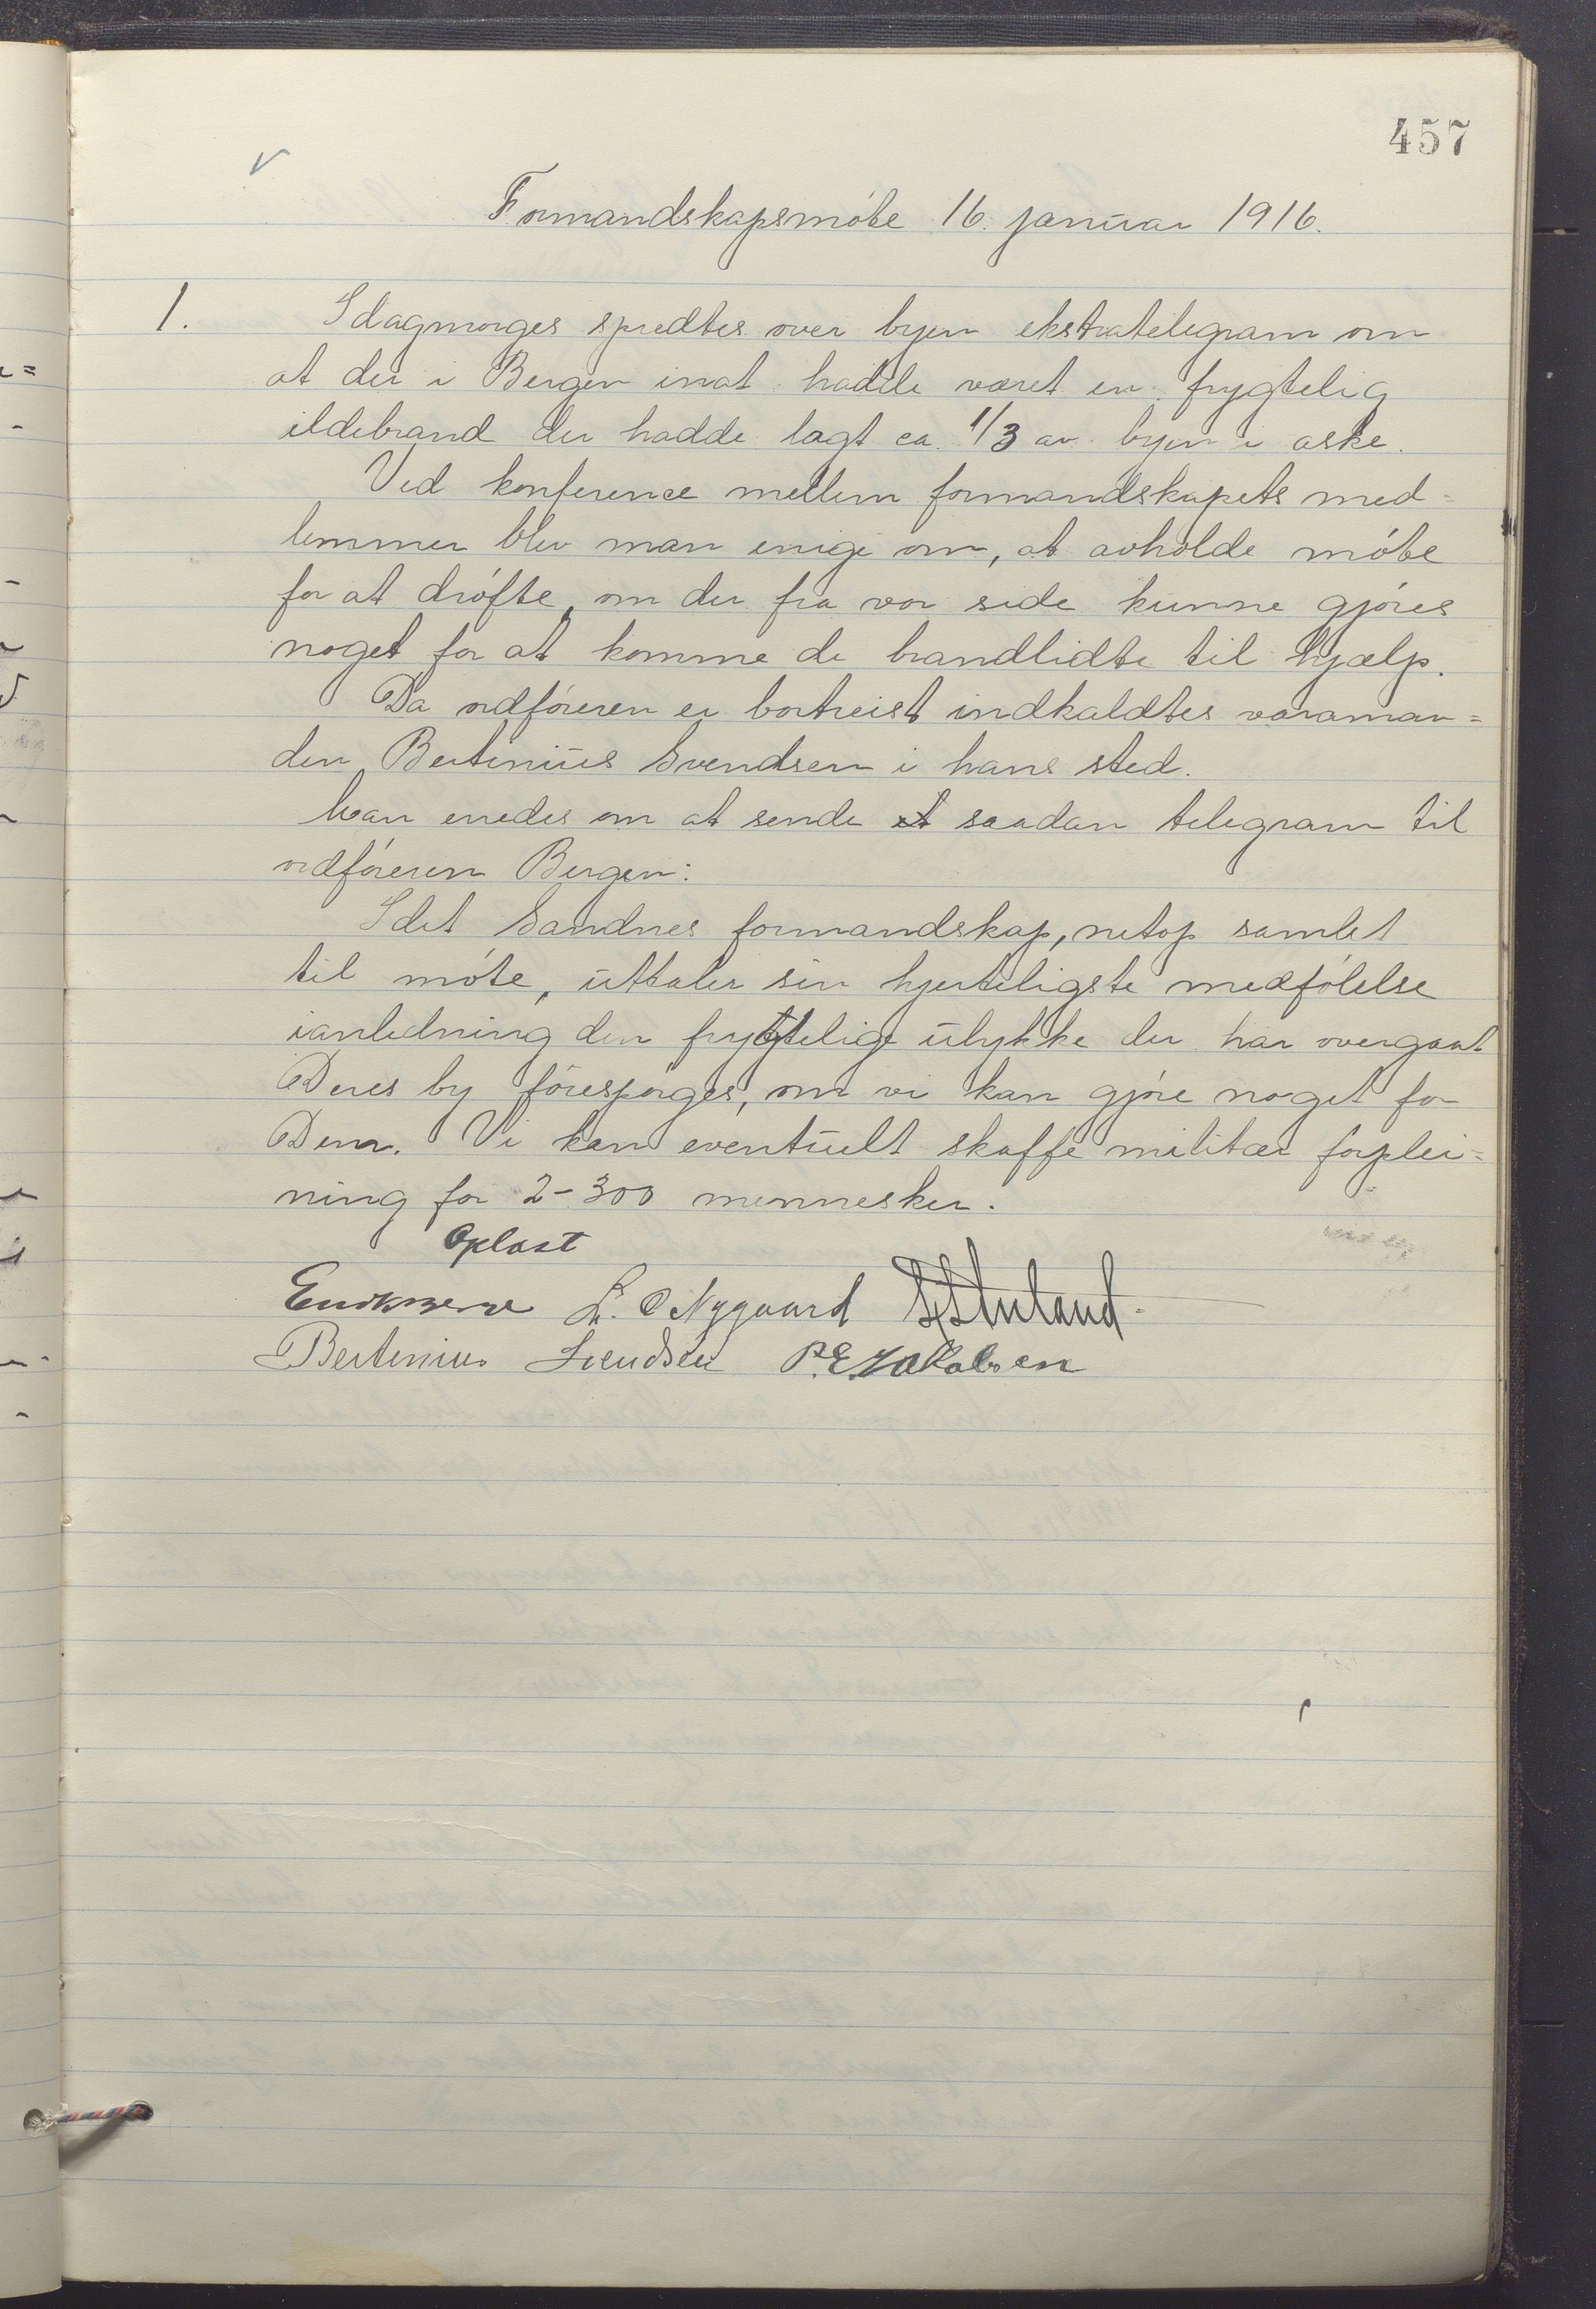 457
Formandskapsmöte 16. januar 1916.
1. Idagmorges spredtes over byen ekstratelegram om
at der i Bergen inat hadde været en frygtelig
ildebrand der hadde lagt ca. 1/3 av byen i aske.
Ved konference mellem formandskapets med=
lemmer blev man enige om, at avholde möte
for at dröfte, om der fra vor side kunne gjöres
noget for at komme de brandlidte til hjælp.
Da ordföreren er bortreist indkaldtes varaman=
den Bertinius Svendsen i hans sted.
Man enedes om at sende et saadan telegram til
ordföreren Bergen:
Idet Sandnes formandskap, netop samlet
til möte, uttaler sin hjerteligste medfölelse
ianledning den frygtelige ulykke der har overgaat
Deres by föresporges, om vi kan gjöre noget for
Dem. Vi kan eventuelt skaffe militær forplei=
ning for 2-300 mennesker.
Oplæst
L. O Nygaard
Bertinius Svendsen P. E. Jakobsen